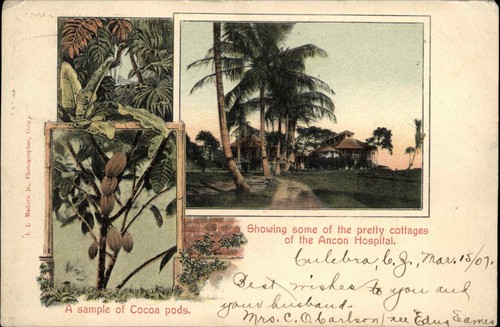 I. L. Maduro Jr. Photographer,
Showing some of the pretty cottages
of the Ancon Hospital.
Culebra, C.Z., Mar. 15/07.
Best wishes to you and
your husband.
Mrs. C. O. Carlson / nee Edna Eames
A sample of Cocoa pods.